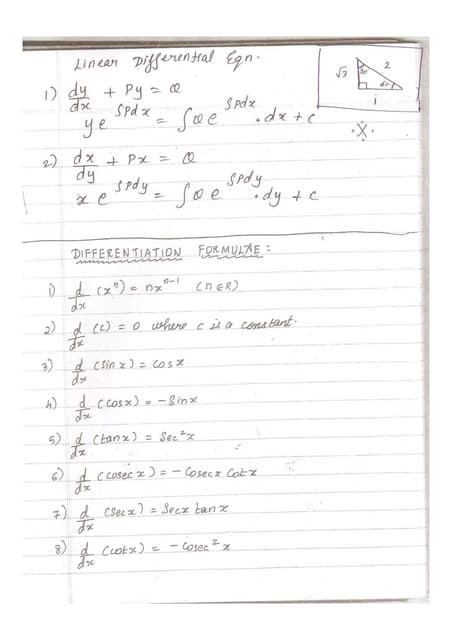 Linear Differential Eqn.
√3 30° 2 60° 1
1) dy/dx + Py = Q
y e^∫Pdx = ∫Q e^∫Pdx . dx + c
.X.
2) dx/dy + Px = Q
x e^∫Pdy = ∫Q e^∫Pdy . dy + c
DIFFERENTIATION FORMULAE :
1) d/dx (xⁿ) = nxⁿ⁻¹ (n ∈ R)
2) d/dx (c) = 0 where c is a constant.
3) d/dx (sin x) = cos x
4) d/dx (cosx) = - Sinx
5) d/dx (tanx) = Sec²x
6) d/dx (cosec x) = - Cosecx Cotx
7) d/dx (Secx) = Secx tanx
8) d/dx (cotx) = - Cosec²x